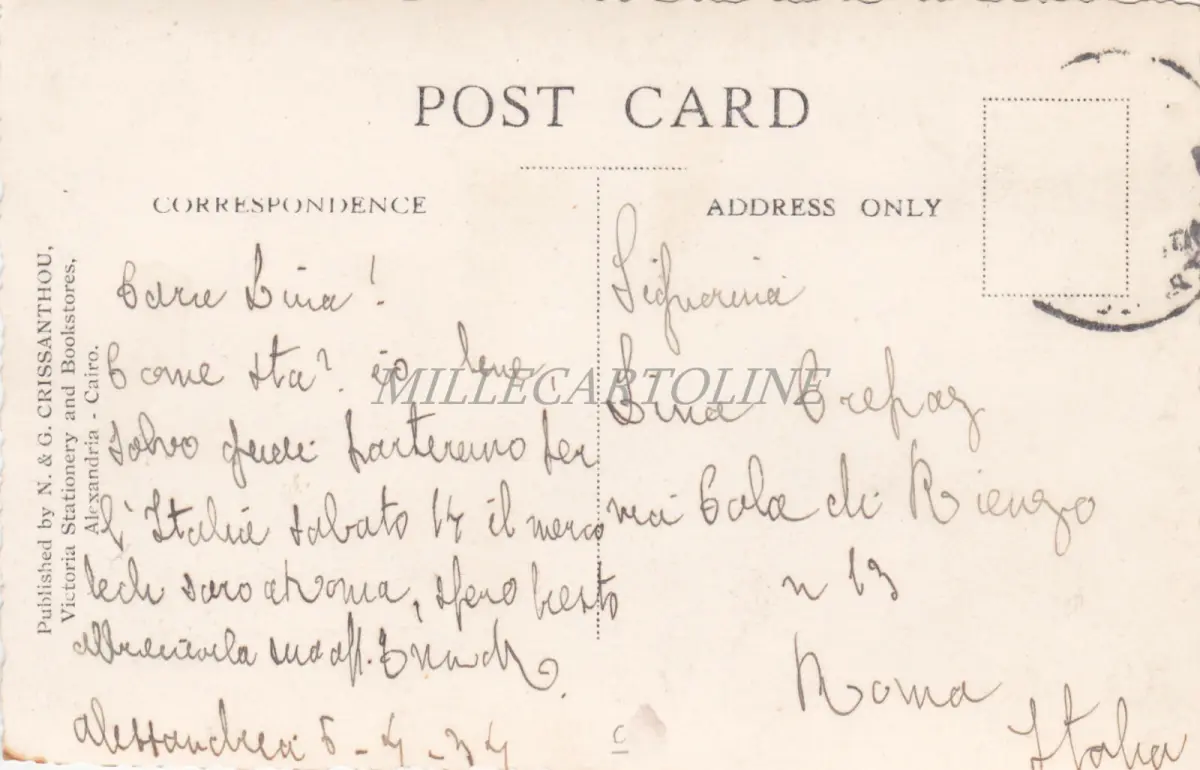 POST CARD
CORRESPONDENCE
ADDRESS ONLY
Published by N. & G. CRISSANTHOU,
Victoria Stationery and Bookstores,
Alexandria - Cairo.
Cara Lina!
Come sta? io bene,
salvo partiremo per
l'Italia sabato 14 il merco
ledi saro a Roma, spero presto
abbracciarla sua aff.
Alessandria 5-4-34
Signorina
Lina Trepaz
via Cola di Rienzo
n 13
Roma
Italia
MILLECARTOLINE
C